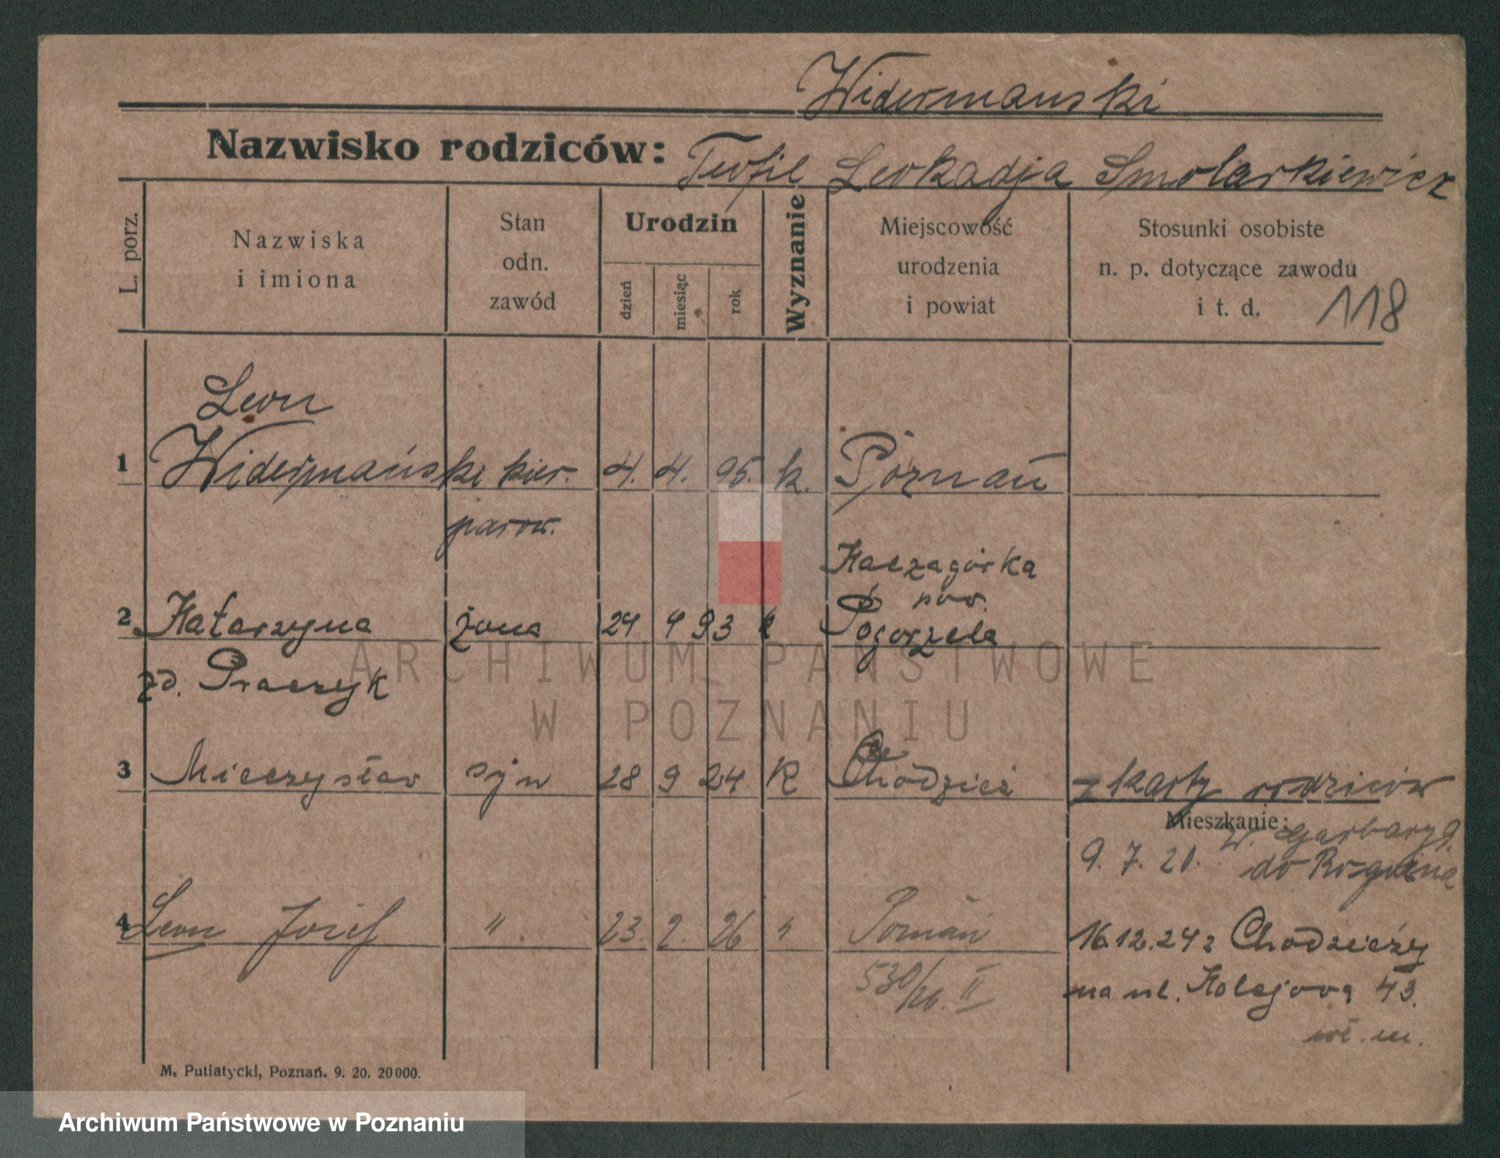 Widermański
Nazwisko rodziców: Teofil Leokadja Smolarkiewicz
L. porz.
Nazwiska
i imiona
Stan
odn.
zawód
Urodzin
dzień
miesiąc
rok
Wyznanie
Miejscowość
urodzenia
i powiat
Stosunki osobiste
n. p. dotyczące zawodu
i t. d.
118
Leon
1 Widermański kier. 4. 4. 95. k. Poznań
parow.
Haczagórka
pow.
2 Katarzyna żona 24 4 93 k Pogorzela
zd. Praczyk
3 Mieczysław syn 28 9 24 K Chodzież z karty rodziców
Mieszkanie:
9. 7. 21. W. Garbary 9.
do Rogoźna
4 Leon Józef " 23. 2. 26 " Poznań
16.12.24 z Chodzieży
530/26. II
na ul. Kolejową 43.
wł. m.
M. Putiatycki, Poznań. 9. 20. 20000.
ARCHIWUM PAŃSTWOWE
W POZNANIU
Archiwum Państwowe w Poznaniu